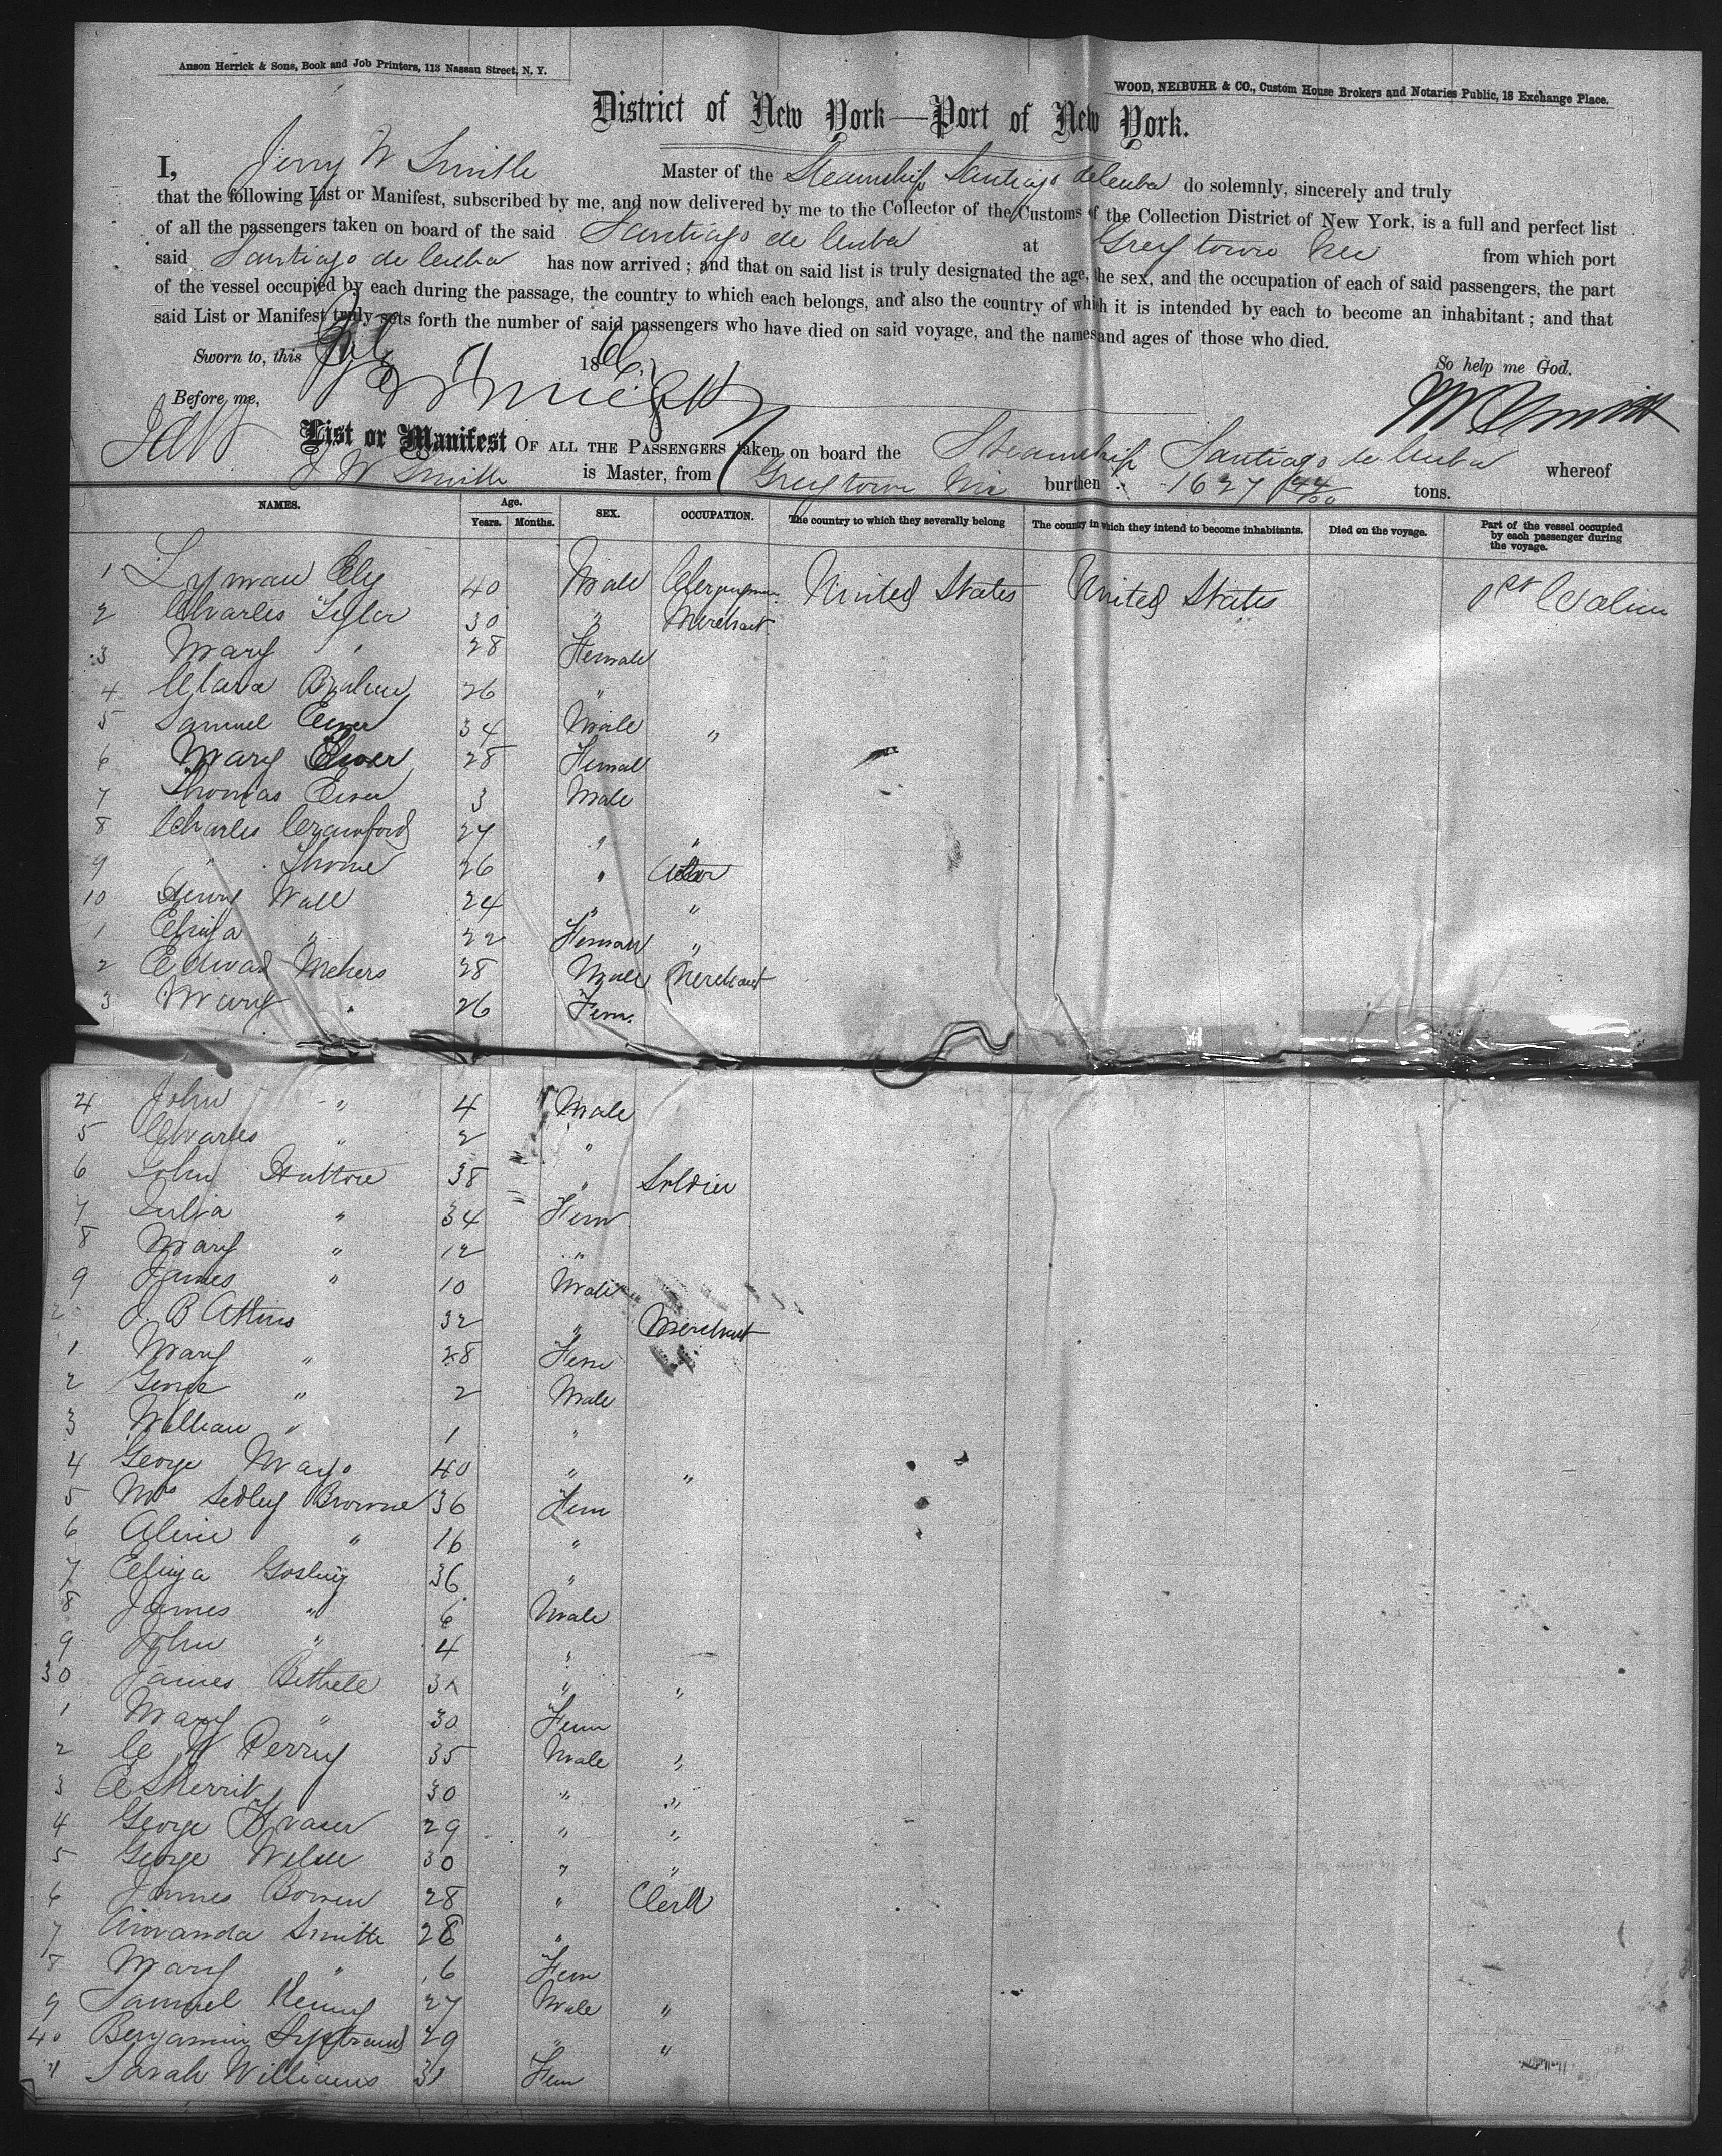 Anson Herrick & Sons, Book and Job Printers, 113 Nassau Street, N. Y.
WOOD, NEIBUHR & CO., Custom House Brokers and Notaries Public, 18 Exchange Place.
District of New York—Port of New York.
I, Jerry W Smith Master of the Steamship Santiago de Cuba do solemnly, sincerely and truly
that the following List or Manifest, subscribed by me, and now delivered by me to the Collector of the Customs of the Collection District of New York, is a full and perfect list
of all the passengers taken on board of the said Santiago de Cuba at Greytown Nic from which port
said Santiago de Cuba has now arrived; and that on said list is truly designated the age, the sex, and the occupation of each of said passengers, the part
of the vessel occupied by each during the passage, the country to which each belongs, and also the country of which it is intended by each to become an inhabitant; and that
said List or Manifest truly sets forth the number of said passengers who have died on said voyage, and the names and ages of those who died.
Sworn to, this 1866, So help me God.
Before me,
List or Manifest OF ALL THE PASSENGERS taken on board the Steamship Santiago de Cuba whereof
J W Smith is Master, from Greytown Nic burthen 1627 44/100 tons.
NAMES. Age. Years. Months. SEX. OCCUPATION. The country to which they severally belong The country in which they intend to become inhabitants. Died on the voyage. Part of the vessel occupied by each passenger during the voyage.
1 Lyman Ely 40 Male Clergyman United States United States 1st Cabin
2 Charles 30 " Merchant
3 Mary " 28 Female
4 Clara 26 "
5 Samuel Elwer 34 Male "
6 Mary Elwer 28 Femal
7 Thomas Elwer 3 Male
8 Charles Crawford 27 " "
9 " Thorne 26 " Actor
10 Henry Wall 24 " "
1 Eliza " 22 Female "
2 Edward Mehers 28 Male Merchant
3 Mary " 26 Fem.
4 John " 4 Male
5 Charles " 2 "
6 John Hutton 38 " Soldier
7 Julia " 34 Fem
8 Mary " 12 "
9 James " 10 Male
2 J. B Atkins 32 " Merchant
1 Mary " 28 Fem
2 George " 2 Male
3 William " 1 "
4 George Mayo 40 " "
5 Mrs Sedley Browne 36 Fem
6 Aline " 16 "
7 Eliza Gosling 36 "
8 James " 6 Male
9 John " 4 "
30 James Bethell " "
1 Mary " 30 Fem
2 C W Perry 35 Male "
3 E Sherrit 30 " "
4 George Fraser 29 " "
5 George Wilde 30 " "
6 James Bowen 28 " Clerk
7 Amanda Smith 28 "
8 Mary " 6 Fem
9 Samuel Kenny 27 Male "
40 Benjamin 29 " "
" Sarah Williams 31 Fem